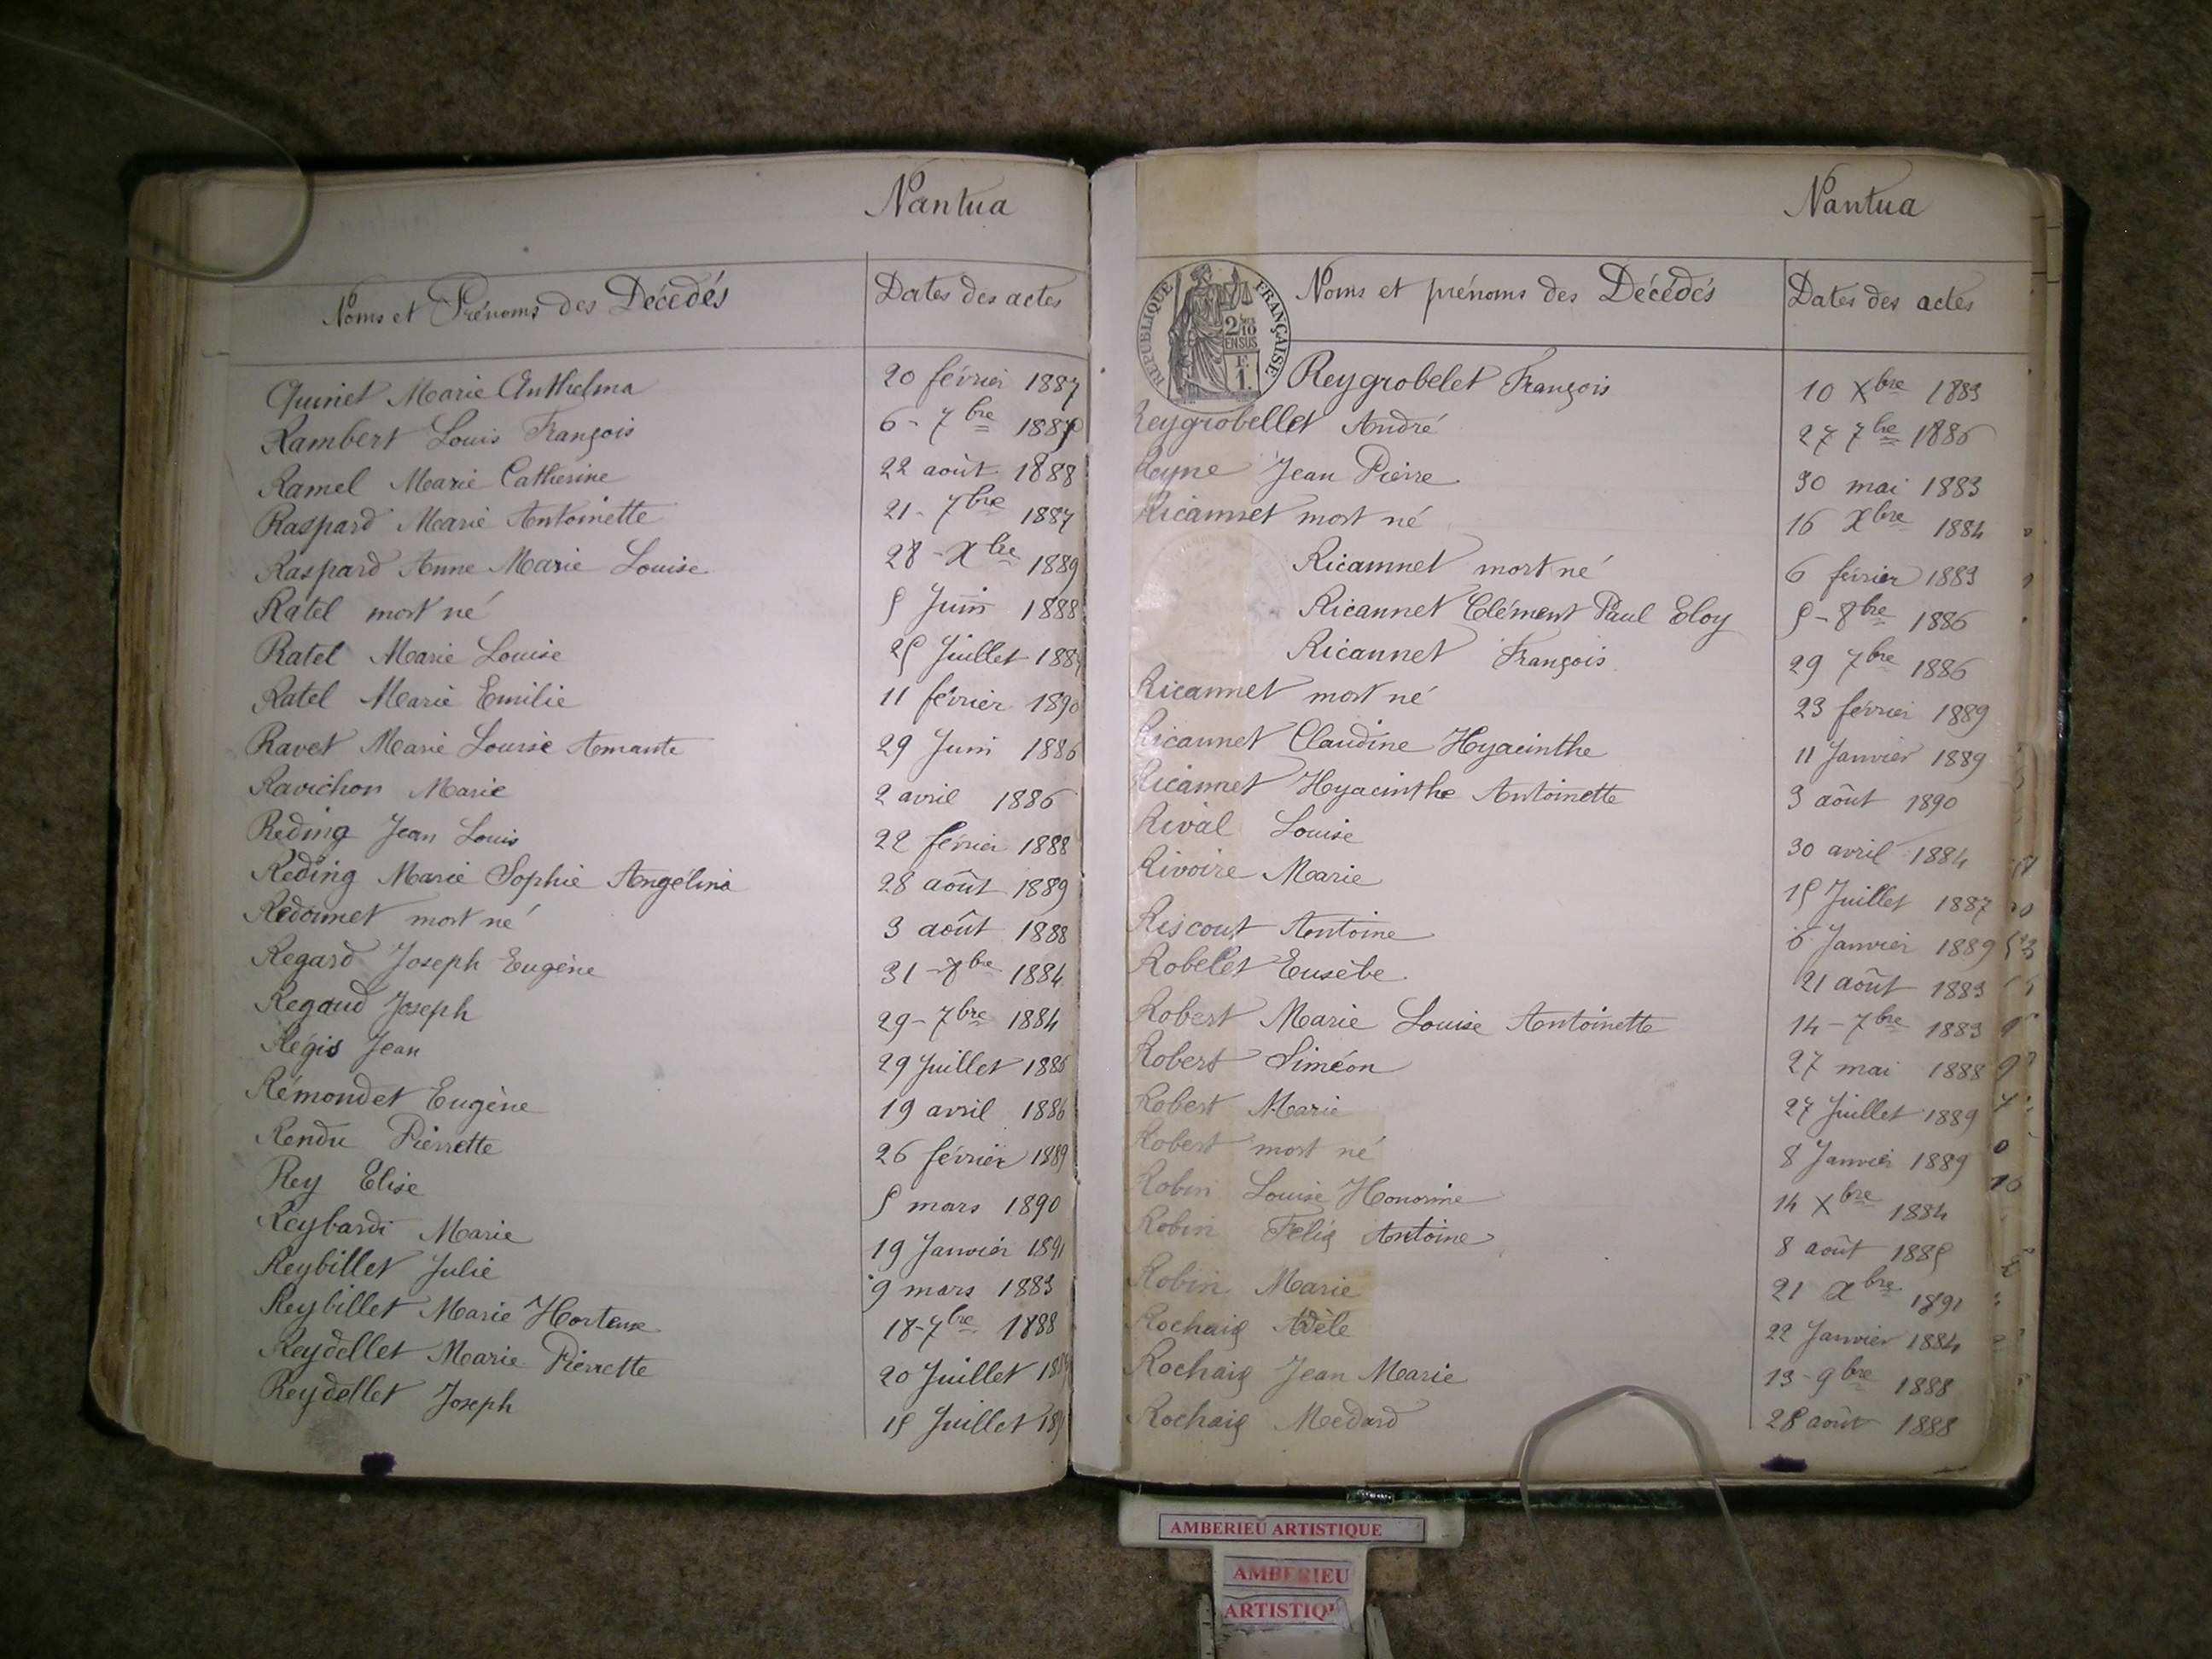 Nantua
Noms et Prénoms des Décédés Dates des actes
Quinet Marie Anthelma 20 février 1887
Rambert Louis François 6 - 7bre
Ramel Marie Catherine 22 août 1888
Raspard Marie Antoinette 21 - 7bre 1887
Raspard Anne Marie Louise 28 - Xbre 1889
Ratel mort né 5 Juin 1888
Ratel Marie Louise 25 Juillet
Ratel Marie Emilie 11 février 1890
Ravet Marie Louise Amante 29 Juin 1886
Ravichon Marie 2 avril 1886
Reding Jean Louis 22 février 1888
Reding Marie Sophie Angélina 28 août 1889
Redonnet mort né 3 août 1888
Regard Joseph Eugène 31 - 8bre 1884
Regaud Joseph 29 - 7bre 1884
Régis Jean 29 Juillet 1886
Rémondet Eugène 19 avril 1886
Rendu Pierrette 26 février 1889
Rey Elise 5 mars 1890
Reybardi Marie 19 Janvier 1891
Reybillet Julie 9 mars 1883
Reybillet Marie Hortense 18 - 7bre 1888
Reydellet Marie Pierrette 20 Juillet
Reydellet Joseph 15 Juillet
Nantua
Noms et prénoms des Décédés Dates des actes
RÉPUBLIQUE FRANÇAISE
2/10
EN SUS
F.
1.
Reygrobelet François 10 Xbre 1883
Reygrobellet André 27 7bre 1886
Reyne Jean Pierre 30 mai 1883
Ricannet mort né 16 Xbre 1884
Ricannet mort né 6 février 1883
Ricannet Clément Paul Eloy 5 - 8bre 1886
Ricannet François 29 7bre 1886
Ricannet mort né 23 février 1889
Ricannet Claudine Hyacinthe 11 Janvier 1889
Ricannet Hyacinthe Antoinette 3 août 1890
Rival Louise 30 avril 1884
Rivoire Marie 15 Juillet 1887
Riscout Antoine 6 Janvier 1889
Robelet Eusèbe 21 août 1883
Robert Marie Louise Antoinette 14 - 7bre 1883
Robert Siméon 27 mai 1888
Robert Marie 27 Juillet 1889
Robert mort né 8 Janvier 1889
Robin Louise Honorine 14 Xbre 1884
Robin Félix Antoine 8 août 1885
Robin Marie 21 Xbre 1891
Rochaix Adèle 22 Janvier 1884
Rochaix Jean Marie 13 - 9bre 1888
Rochaix Médard 28 août 1888
AMBERIEU ARTISTIQUE
AMBERIEU
ARTISTIQU